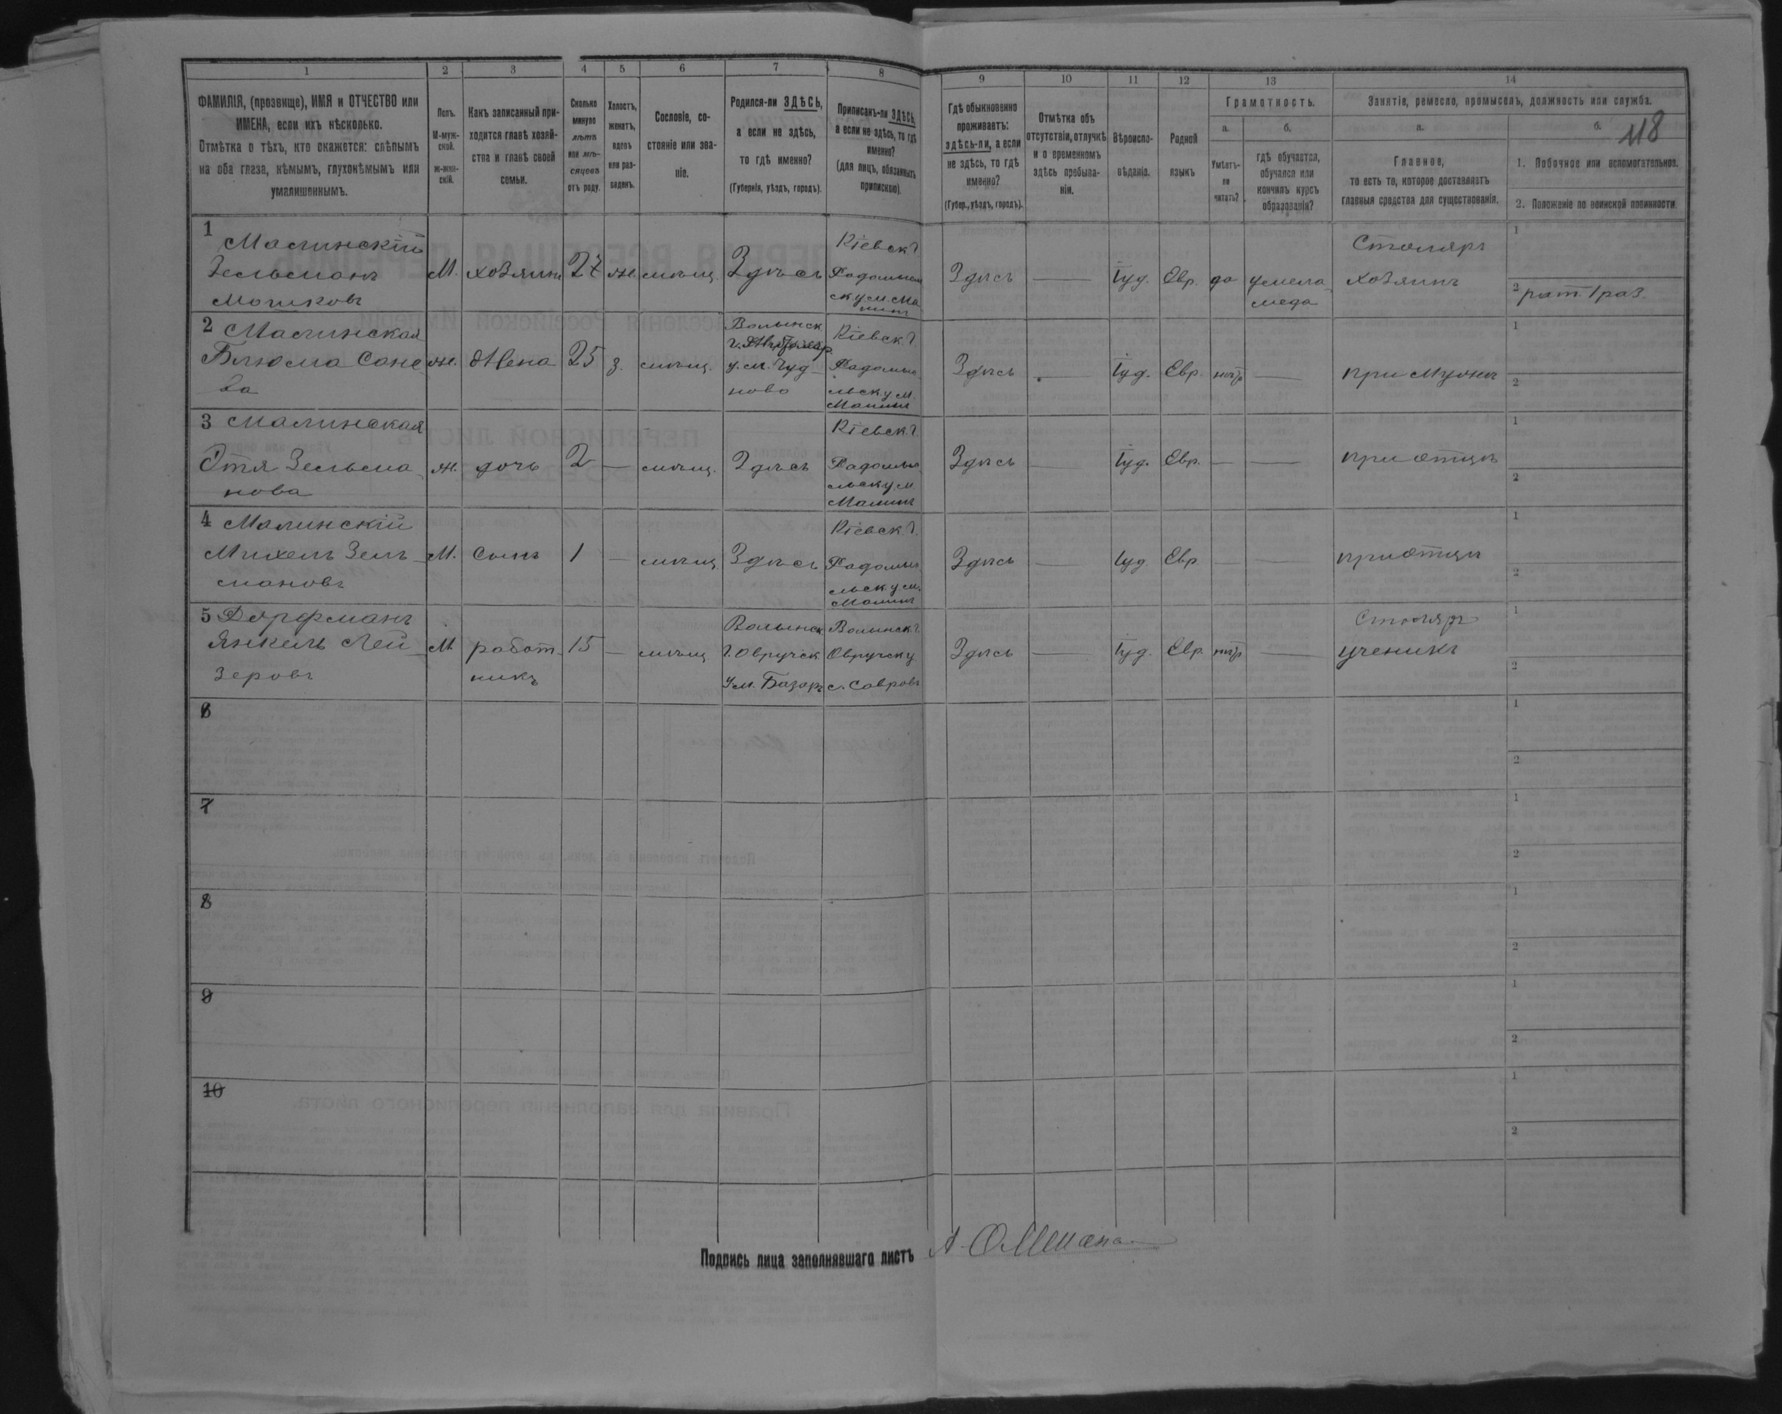 1
2
3
4
5
6
7
8
9
10
11
12
13
14
ФАМИЛІЯ, (прозвище), ИМЯ и ОТЧЕСТВО или
ИМЕНА, если ихъ нѣсколько.
Отмѣтка о тѣхъ, кто окажется: слѣпымъ
на оба глаза, нѣмымъ, глухонѣмымъ или
умалишеннымъ.
Полъ.
М-муж-
ской.
Ж-жен-
скій.
Какъ записанный при-
ходится главѣ хозяй-
ства и главѣ своей
семьи.
Сколько
минуло
лѣтъ
или мѣ-
сяцевъ
отъ роду.
Холостъ,
женатъ,
вдовъ
или раз-
веденъ.
Сословіе, со-
стояніе или зва-
ніе.
Родился-ли ЗДѢСЬ,
а если не здѣсь,
то гдѣ именно?
(Губернія, уѣздъ, городъ).
Приписанъ-ли ЗДѢСЬ,
а если не здѣсь, то гдѣ
именно?
(для лицъ, обязанныхъ
припискою).
Гдѣ обыкновенно
проживаетъ:
здѣсь-ли, а если
не здѣсь, то гдѣ
именно?
(Губер., уѣздъ, городъ).
Отмѣтка объ
отсутствіи, отлучкѣ
и о временномъ
здѣсь пребыва-
ніи.
Вѣроиспо-
вѣданіе.
Родной
языкъ
Грамотность.
а.
б.
Умѣетъ-
ли
читать?
гдѣ обучается,
обучался или
кончилъ курсъ
образованія?
Занятіе, ремесло, промыселъ, должность или служба.
а.
б.
118
Главное,
то есть то, которое доставляетъ
главныя средства для существованія.
1. Побочное или вспомогательное.
2. Положеніе по воинской повинности
1
Малинскій
Зельманъ
Мошковъ
М.
хозяинъ
27
ж.
мѣщ.
Здѣсь
Кіевск Г
Радомысл
ску м. Ма
линъ
Здѣсь
Іуд.
Евр.
да
у мела
меда
Столяръ
хозяинъ
1
2
рат. 1 раз.
2
Малинская
Блюма
ва
ж.
Жена
25
з.
мѣщ.
Волынск
у. м. Чуд
ново
Кіевск Г
Радомы
льск у м.
Малинъ
Здѣсь
Іуд.
Евр.
нѣтъ
при мужѣ
1
2
3
Малинская
Зельма
нова
ж.
дочь
2
мѣщ.
Здѣсь
Кіевск Г
Радомы
льск у м
Малинъ
Здѣсь
Іуд.
Евр.
при отцѣ
1
2
4
Малинскій
Михель Зель
мановъ
М.
сынъ
1
мѣщ
Здѣсь
Кіевск Г.
Радомы
льск у м.
Малинъ
Здѣсь
Іуд
Евр
при отцѣ
1
2
5
Дорфманъ
Янкель Лей
зеровъ
М.
работ
никъ
15
мѣщ
Волынск
Г. Овручск
У м. Базаръ
Волынск Г
Овручск у
Здѣсь
Іуд.
Евр.
нѣтъ
Столяръ
ученикъ
1
2
6
1
2
7
1
2
8
1
2
9
1
2
10
1
2
Подпись лица заполнявшаго листъ